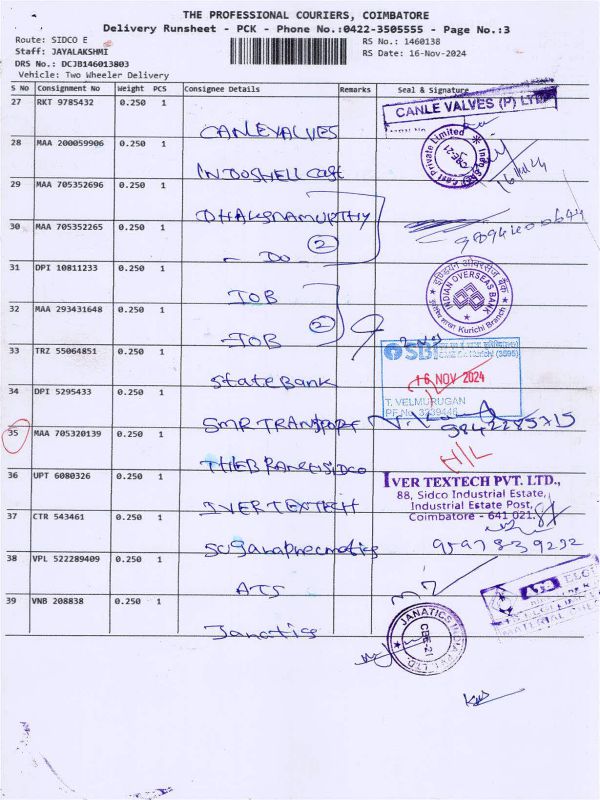 THE PROFESSIONAL COURIERS, COIMBATORE
Delivery Runsheet - PCK - Phone No.:0422-3505555 - Page No.:3
Route: SIDCO E
RS No.: 1460138
Staff: JAYALAKSHMI
RS Date: 16-Nov-2024
DRS No.: DCJB146013803
Vehicle: Two Wheeler Delivery
S No Consignment No Weight PCS Consignee Details Remarks Seal & Signature
27 RKT 9785432 0.250 1
CANLEVALVES
CANLE VALVES (P) LTD
28 MAA 200059906 0.250 1
INDOSHELL Cast
Cast Private Limited
CBE-21
16/11/24
29 MAA 705352696 0.250 1
DHAKSNAMURTHY
30 MAA 705352265 0.250 1
- Do - 2
31 DPI 10811233 0.250 1
IOB
इण्डियन ओवरसीज़ बैंक
INDIAN OVERSEAS BANK
Kurichi Branch
32 MAA 293431648 0.250 1
IOB 2
33 TRZ 55064851 0.250 1
State Bank
SBI
16 NOV 2024
T. VELMURUGAN
PF No. 3239446
34 DPI 5295433 0.250 1
SMR TRANSPORT
9842285715
35 MAA 705320139 0.250 1
THE BRANCH SIDCO
H/L
36 UPT 6080326 0.250 1
IVER TEXTECH
IVER TEXTECH PVT. LTD.,
88, Sidco Industrial Estate,
Industrial Estate Post,
Coimbatore - 641 021.
37 CTR 543461 0.250 1
suganapneumatics
9597839292
38 VPL 522289409 0.250 1
ATS
ELGI
39 VNB 208838 0.250 1
Janatics
JANATICS INDIA PVT. LTD.
CBE-21